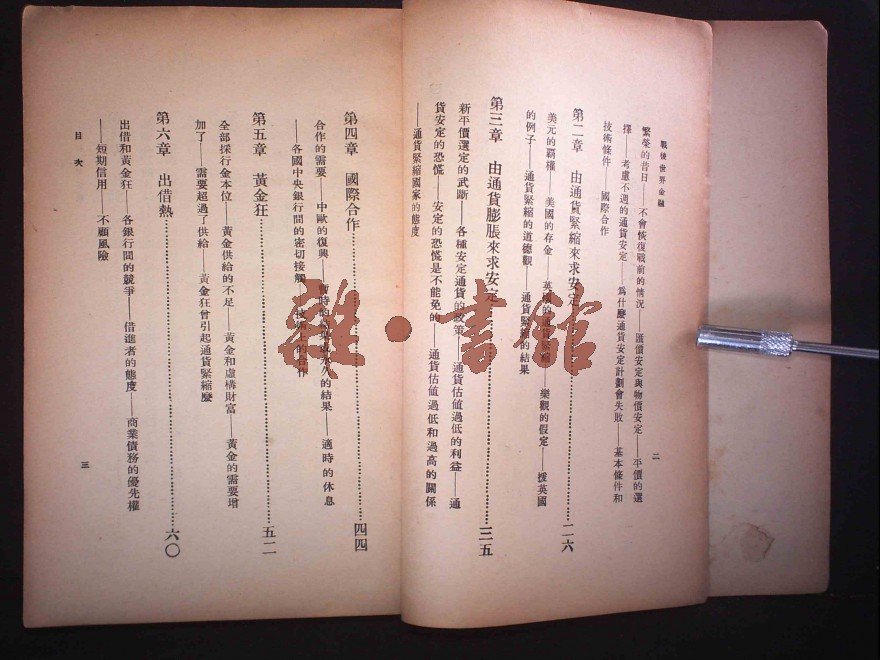 戰後世界金融
二
繁榮的昔日——不會恢復戰前的情況——匯價安定與物價安定——平價的選
擇——考慮不週的通貨安定——爲什麼通貨安定計劃會失敗——基本條件和
技術條件——國際合作
第二章 由通貨緊縮來求安定……二六
美元的覇權——美國的存金——英國的通貨緊縮——樂觀的假定——援英國
的例子——通貨緊縮的道德觀——通貨緊縮的結果
第三章 由通貨膨脹來求安定……三五
新平價選定的武斷——各種安定通貨的政策——通貨估値過低的利益——通
貨安定的恐慌——安定的恐慌是不能免的——通貨估値過低和過高的關係
——通貨緊縮國家的態度
第四章 國際合作……四四
合作的需要——中歐的復興——暫時的結果永久的結果——適時的休息
——各國中央銀行間的密切接觸——技術上的合作
第五章 黃金狂……五二
全部採行金本位——黃金供給的不足——黃金和虛構財富——黃金的需要增
加了——需要超過了供給——黃金狂曾引起通貨緊縮麼
第六章 出借熱……六〇
出借和黃金狂——各銀行間的競爭——借進者的態度——商業債務的優先權
——短期信用——不顧風險
目次
三
雜·書館